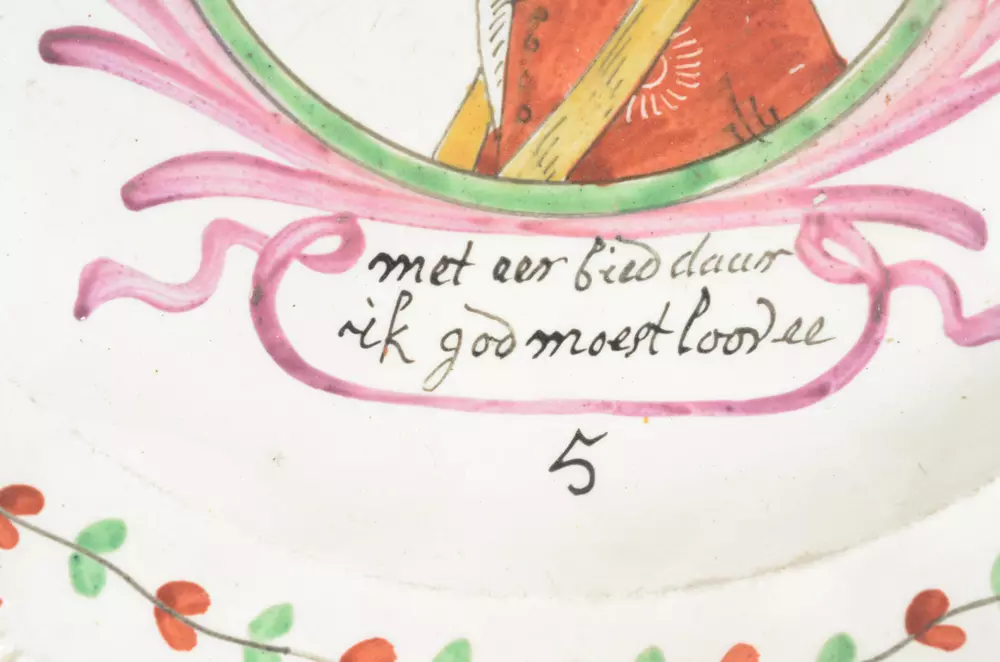 met eer bied daar
ik god moest loovee
5